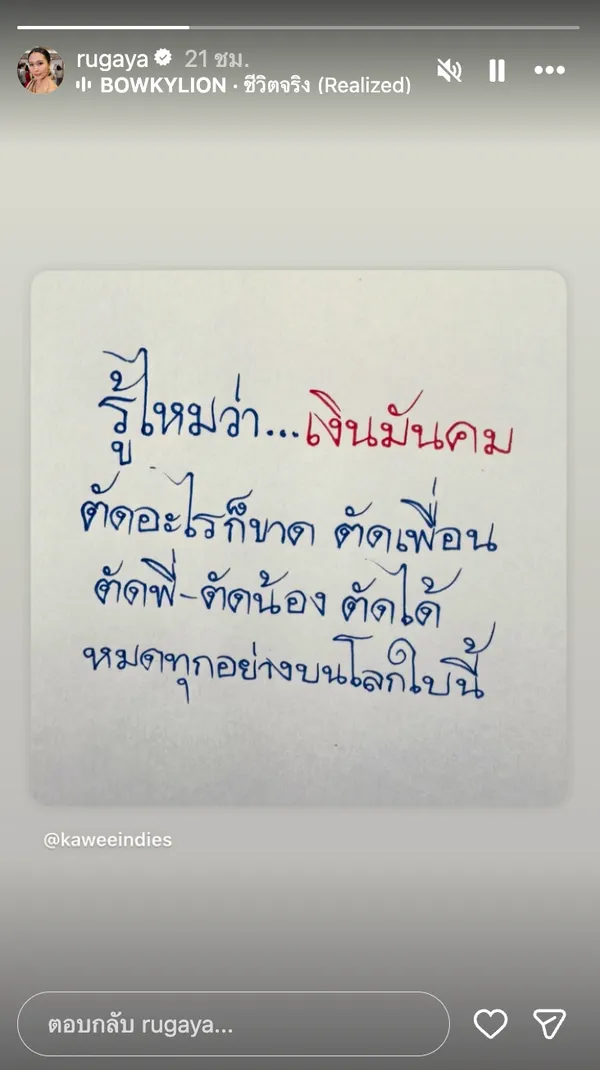 rugaya 21 ชม.
BOWKYLION · ชีวิตจริง (Realized)
รู้ไหมว่า...เงินมันคม
ตัดอะไรก็ขาด ตัดเพื่อน
ตัดพี่-ตัดน้อง ตัดได้
หมดทุกอย่างบนโลกใบนี้
@kaweeindies
ตอบกลับ rugaya...